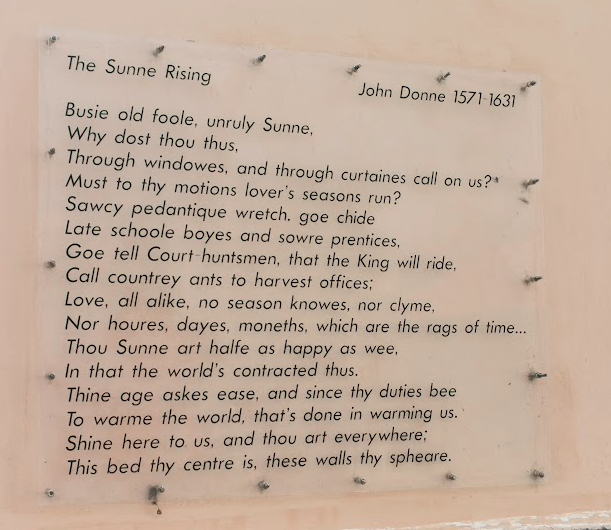 The Sunne Rising
John Donne 1571-1631
Busie old foole, unruly Sunne,
Why dost thou thus,
Through windowes, and through curtaines call on us?
Must to thy motions lover's seasons run?
Sawcy pedantique wretch. goe chide
Late schoole boyes and sowre prentices,
Goe tell Court-huntsmen, that the King will ride,
Call countrey ants to harvest offices;
Love, all alike, no season knowes, nor clyme,
Nor houres, dayes, moneths, which are the rags of time...
Thou Sunne art halfe as happy as wee,
In that the world's contracted thus.
Thine age askes ease, and since thy duties bee
To warme the world, that's done in warming us.
Shine here to us, and thou art everywhere;
This bed thy centre is, these walls thy spheare.